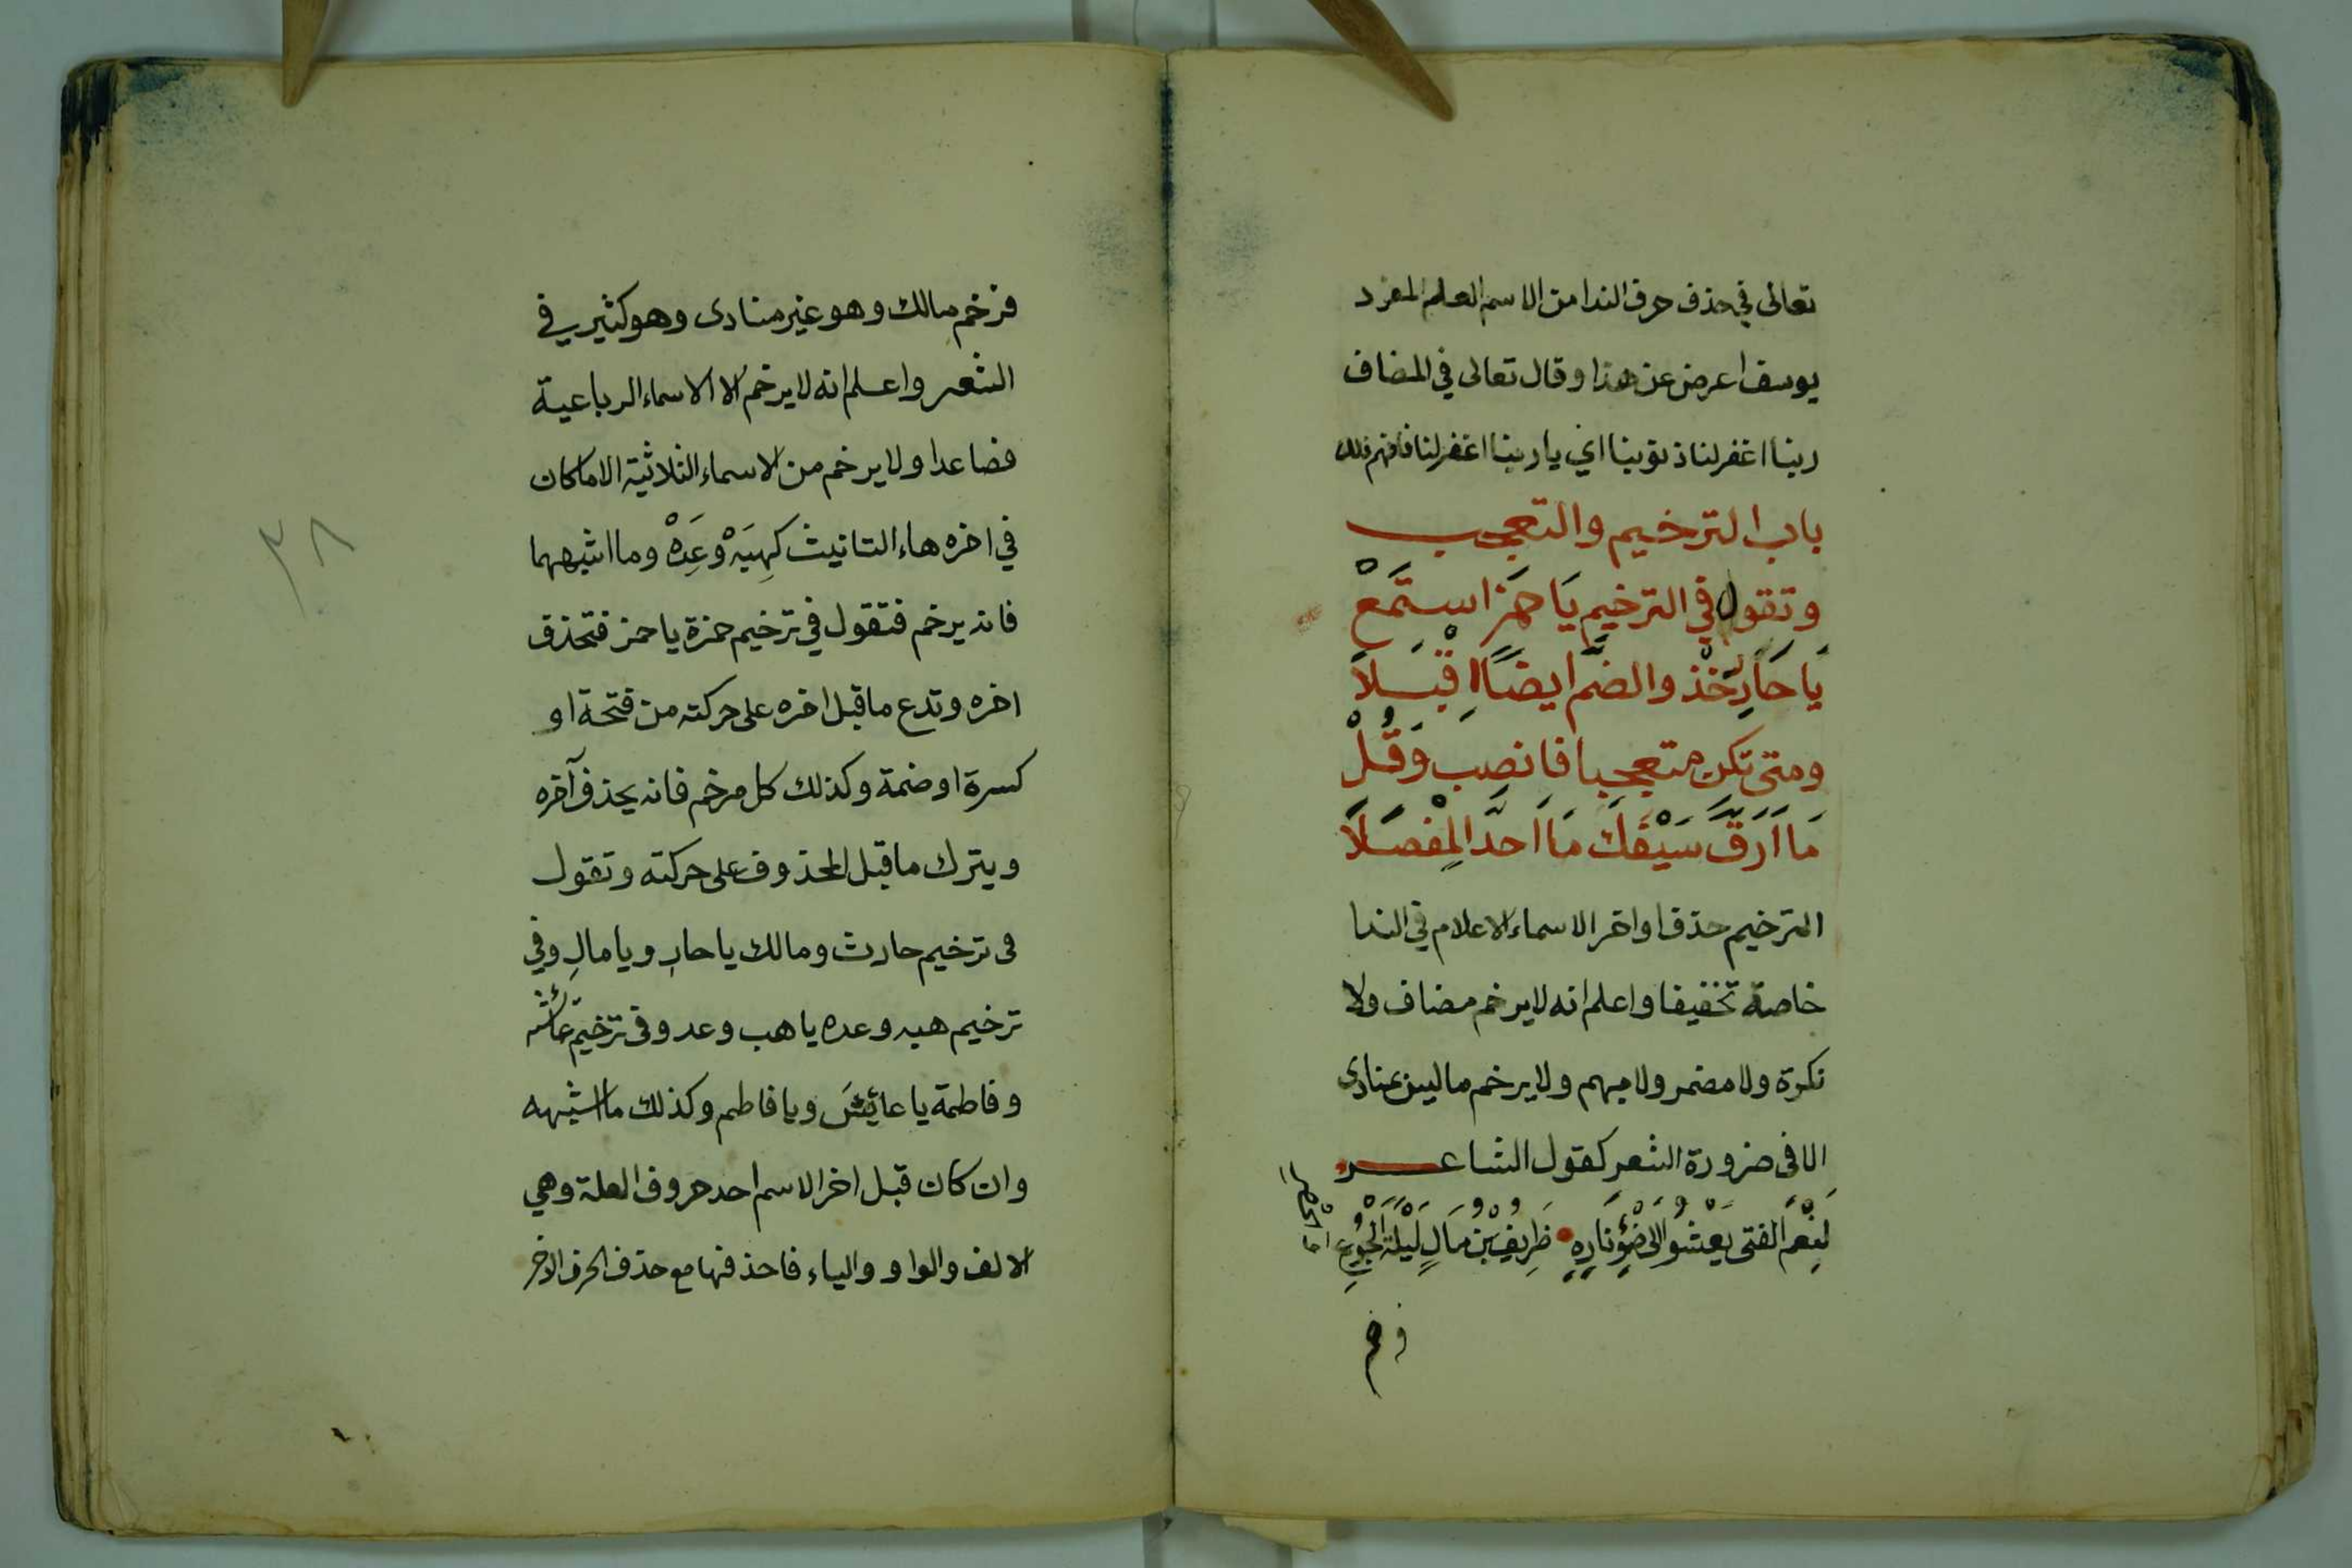 تعالى في حذف حرف الندا من الاسم العلم المفرد
يوسف اعرض عن هذا وقال تعالى في المضاف
ربنا اغفر لنا ذنوبنا اي يا ربنا اغفر لنا فافهم ذلك
باب الترخيم والتعجب
وتقول في الترخيم يَا حَمْزَ اسْتَمَعْ
يَا حَارِ خُذْ والضم ايضًا قِبَلَا
ومتى تكن متعجبا فانصب وَقُلْ
مَا اَرَقَّ سَيْفَكَ مَا اَحَدَّ المِفْصَلَا
الترخيم حذف اواخر الاسماء الاعلام في الندا
خاصة تخفيفا واعلم انه لا يرخم مضاف ولا
نكرة ولا مضمر ولا مبهم ولا يرخم ما ليس بمنادى
الا في ضرورة الشعر كقول الشاعر
لَنِعْمَ الفتى يَعْشُو الى ضَوْءِ نَارِهِ ظَرِيفُ بْنُ مَالِ لَيْلَةَ الْجُوعِ
فرخم
فرخم مالك وهو غير منادى وهو كثير في
الشعر واعلم انه لا يرخم الا الاسماء الرباعية
فصاعدا ولا يرخم من الاسماء الثلاثية الا ما كان
في اخره هاء التانيث كهِبَهْ وعِدَهْ وما اشبههما
فانه يرخم فتقول في ترخيم حمزة يا حمز فتحذف
اخره وتدع ما قبل اخره على حركته من فتحة او
كسرة او ضمة وكذلك كل مرخم فانه يحذف آخره
ويترك ما قبل المحذوف على حركته وتقول
في ترخيم حارث ومالك يا حارِ ويا مالِ وفي
ترخيم هبه وعده يا هب وعد وفي ترخيم عائشة
وفاطمة يا عائشَ ويا فاطم وكذلك ما اشبهه
وان كان قبل اخر الاسم احد حروف العلة وهي
الالف والواو والياء فاحذفها مع حذف الحرف الاخر
٣٨